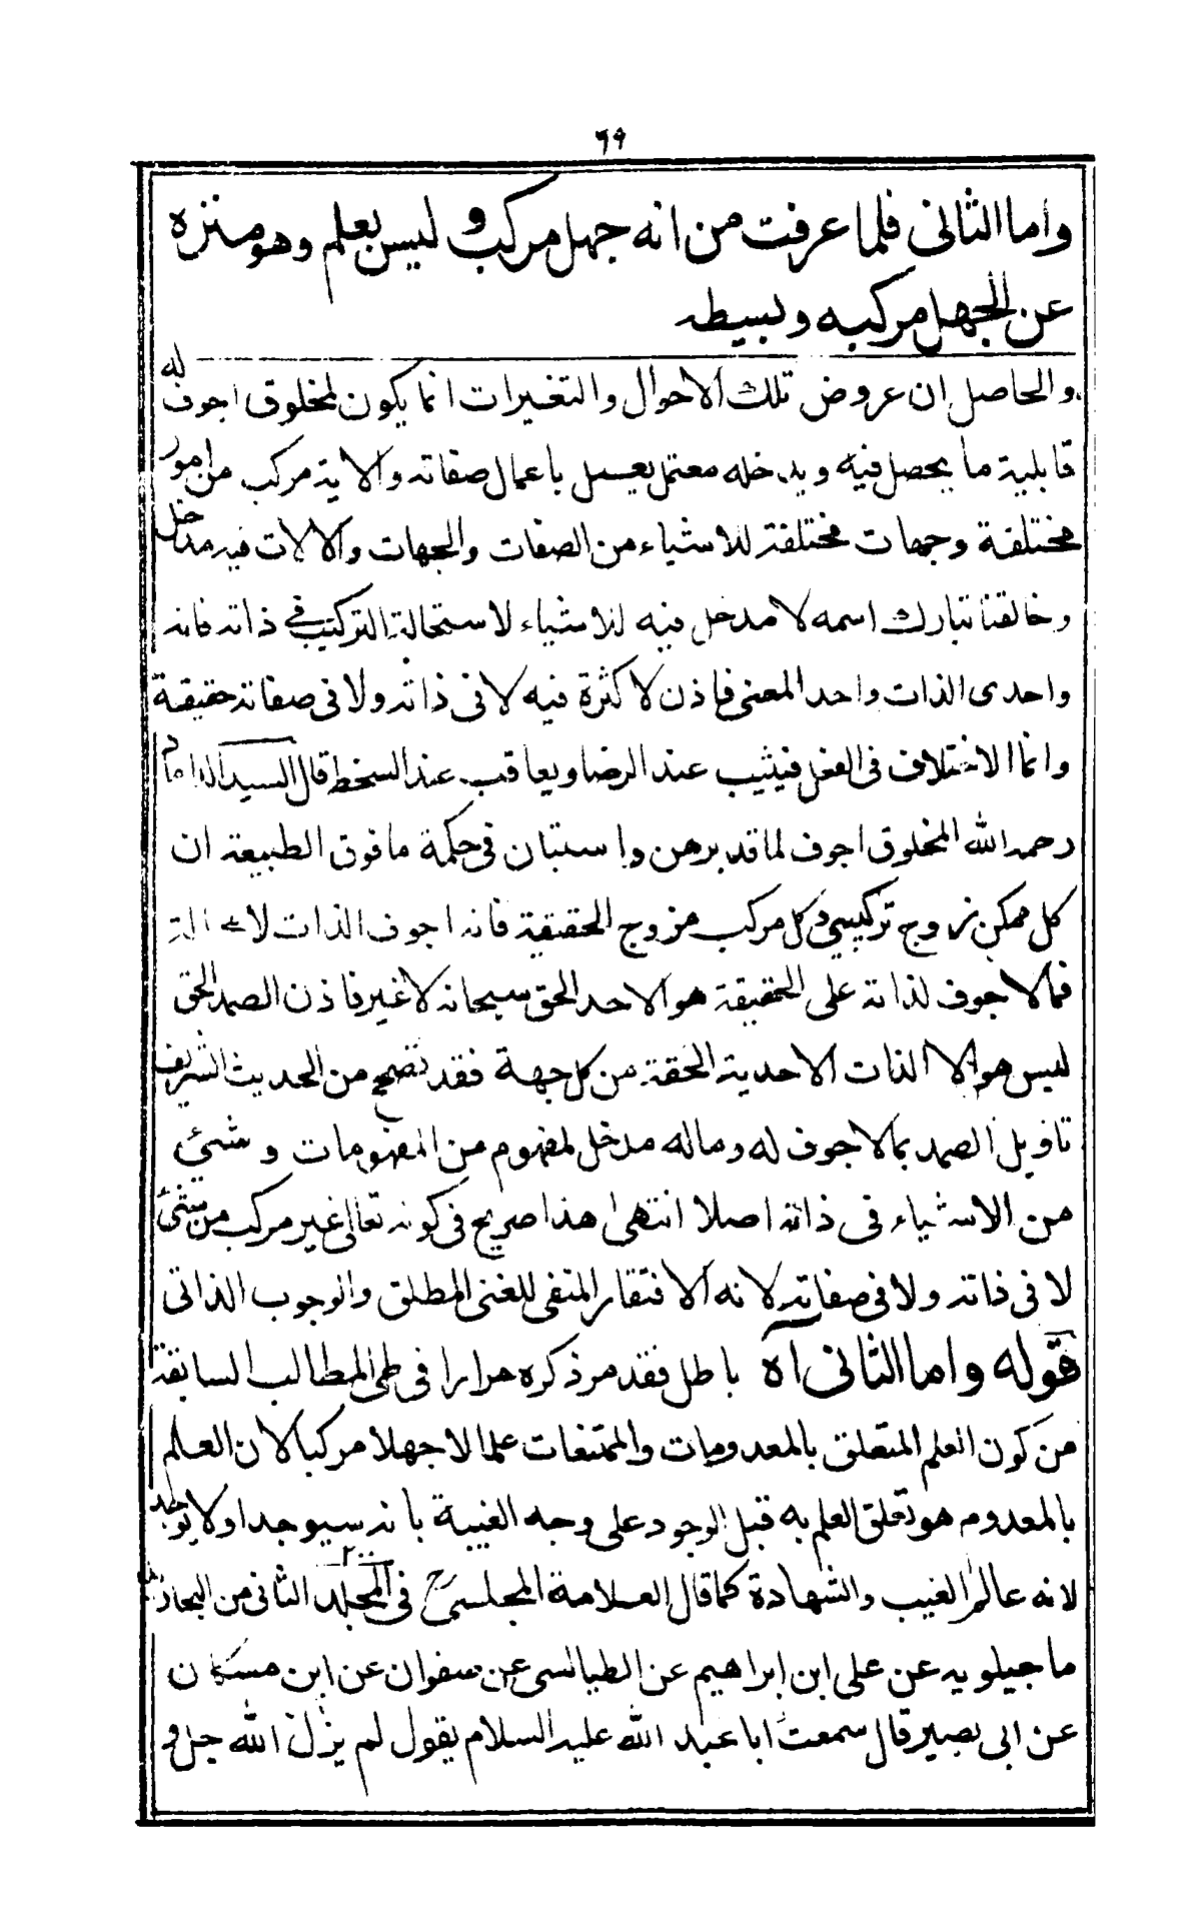 ٦٩
واما الثانى فلما عرفت من انه جهل مركب و ليس بعلم وهو منزه
عن الجهل مركبه وبسيطه
والحاصل ان عروض تلك الاحوال والتغيرات انما يكون لمخلوق اجوف له
قابلية ما يحصل فيه ويدخله معتمل يعمل باعمال صفاته والاية مركب من امور
مختلفة وجهات مختلفة للاشياء من الصفات والجهات والالات فيه مدخل
وخالقنا تبارك اسمه لا مدخل فيه للاشياء لاستحالة التركيب فى ذاته فانه
واحدى الذات واحد المعنى فاذن لا كثرة فيه لا فى ذاته ولا فى صفاته حقيقة
وانما الاختلاف فى الفعل فيثيب عند الرضا ويعاقب عند السخط قال السيد الداماد
رحمه الله المخلوق اجوف لما قد برهن واستبان فى حكمة ما فوق الطبيعة ان
كل ممكن زوج تركيبى وكل مركب مزوج الحقيقة فانه اجوف الذات لا محالة
فما لا جوف لذاته على الحقيقة هو الاحد الحق سبحانه لا غير فاذن الصمد الحق
ليس هو الا الذات الاحدية الحقة من كل جهة فقد تصحح من الحديث الشريف
تاويل الصمد بما لا جوف له وما له مدخل لمفهوم من المفهومات و شئ
من الاشياء فى ذاته اصلا انتهى هذا صريح فى كونه تعالى غير مركب من شئ
لا فى ذاته ولا فى صفاته لانه الافتقار المنفى للغنى المطلق والوجوب الذاتى
قوله واما الثانى آه باطل فقد مر ذكره مرارا فى طى المطالب السابقة
من كون العلم المتعلق بالمعدومات والممتنعات علما لا جهلا مركبا لان العلم
بالمعدوم هو تعلق العلم به قبل الوجود على وجه الغيبة بانه سيوجد او لا يوجد
لانه عالم الغيب والشهادة كما قال العلامة المجلسى رح فى المجلد الثانى من البحار
ماجيلويه عن على ابن ابراهيم عن الطيالسى عن صفوان عن ابن مسكان
عن ابى بصير قال سمعت ابا عبد الله عليه السلام يقول لم يزل الله جل و